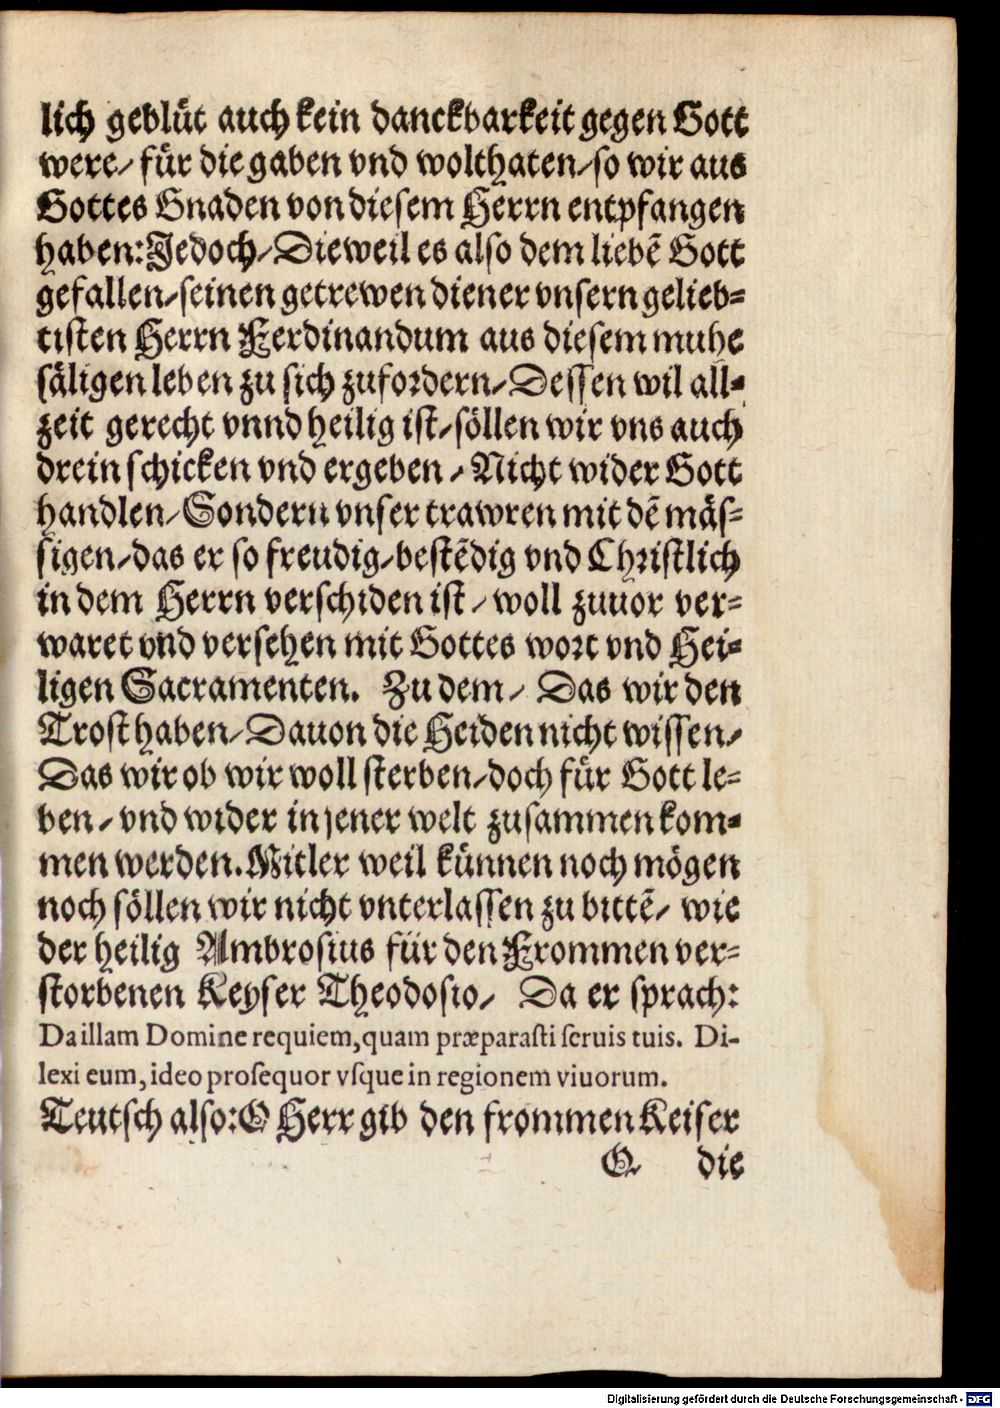 lich geblüt auch kein danckbarkeit gegen Gott
were/ für die gaben vnd wolthaten/ so wir aus
Gottes Gnaden von diesem Herrn entpfangen
haben: Jedoch/ Dieweil es also dem liebē Gott
gefallen/ seinen getrewen diener vnsern gelieb=
tisten Herrn Ferdinandum aus diesem muhe
säligen leben zu sich zufordern/ Dessen wil all=
zeit gerecht vnnd heilig ist/ söllen wir vns auch
drein schicken vnd ergeben/ Nicht wider Gott
handlen/ Sondern vnser trawren mit dē mäs=
sigen/ das er so freudig/ bestēdig vnd Christlich
in dem Herrn verschiden ist/ woll zuuor ver=
waret vnd versehen mit Gottes wort vnd Hei=
ligen Sacramenten. Zu dem/ Das wir den
Trost haben/ Dauon die Heiden nicht wissen/
Das wir ob wir woll sterben/ doch für Gott le=
ben/ vnd wider in jener welt zusammen kom=
men werden. Mitler weil künnen noch mögen
noch söllen wir nicht vnterlassen zu bittē/ wie
der heilig Ambrosius für den Frommen ver=
storbenen Keyser Theodosio/ Da er sprach:
Da illam Domine requiem, quam præparasti seruis tuis. Di-
lexi eum, ideo prosequor vsque in regionem viuorum.
Teutsch also: O Herr gib den frommen Keiser
Q die
Digitalisierung gefördert durch die Deutsche Forschungsgemeinschaft - DFG